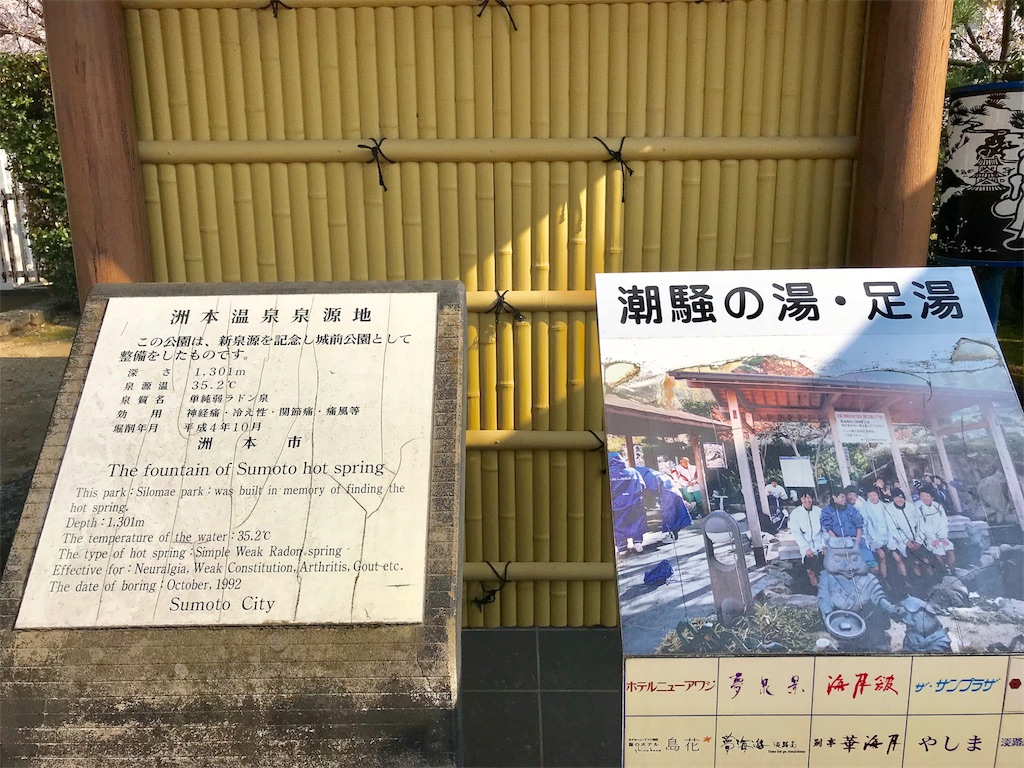 洲本温泉泉源地
この公園は、新泉源を記念し城前公園として
整備をしたものです。
深さ 1,301m
泉源温 35.2℃
泉質名 単純弱ラドン泉
効用 神経痛・冷え性・関節痛・痛風等
堀削年月 平成4年10月
洲本市
The fountain of Sumoto hot spring
This park : Silomae park : was built in memory of finding the
hot spring.
Depth : 1,301m
The temperature of the water : 35.2℃
The type of hot spring : Simple Weak Radon spring
Effective for : Neuralgia, Weak Constitution, Arthritis, Gout etc.
The date of boring : October, 1992
Sumoto City
潮騒の湯・足湯
ホテルニューアワジ
夢泉景
海月館
ザ・サンプラザ
島花
夢海游 淡路島
別亭 華海月
やしま
淡路